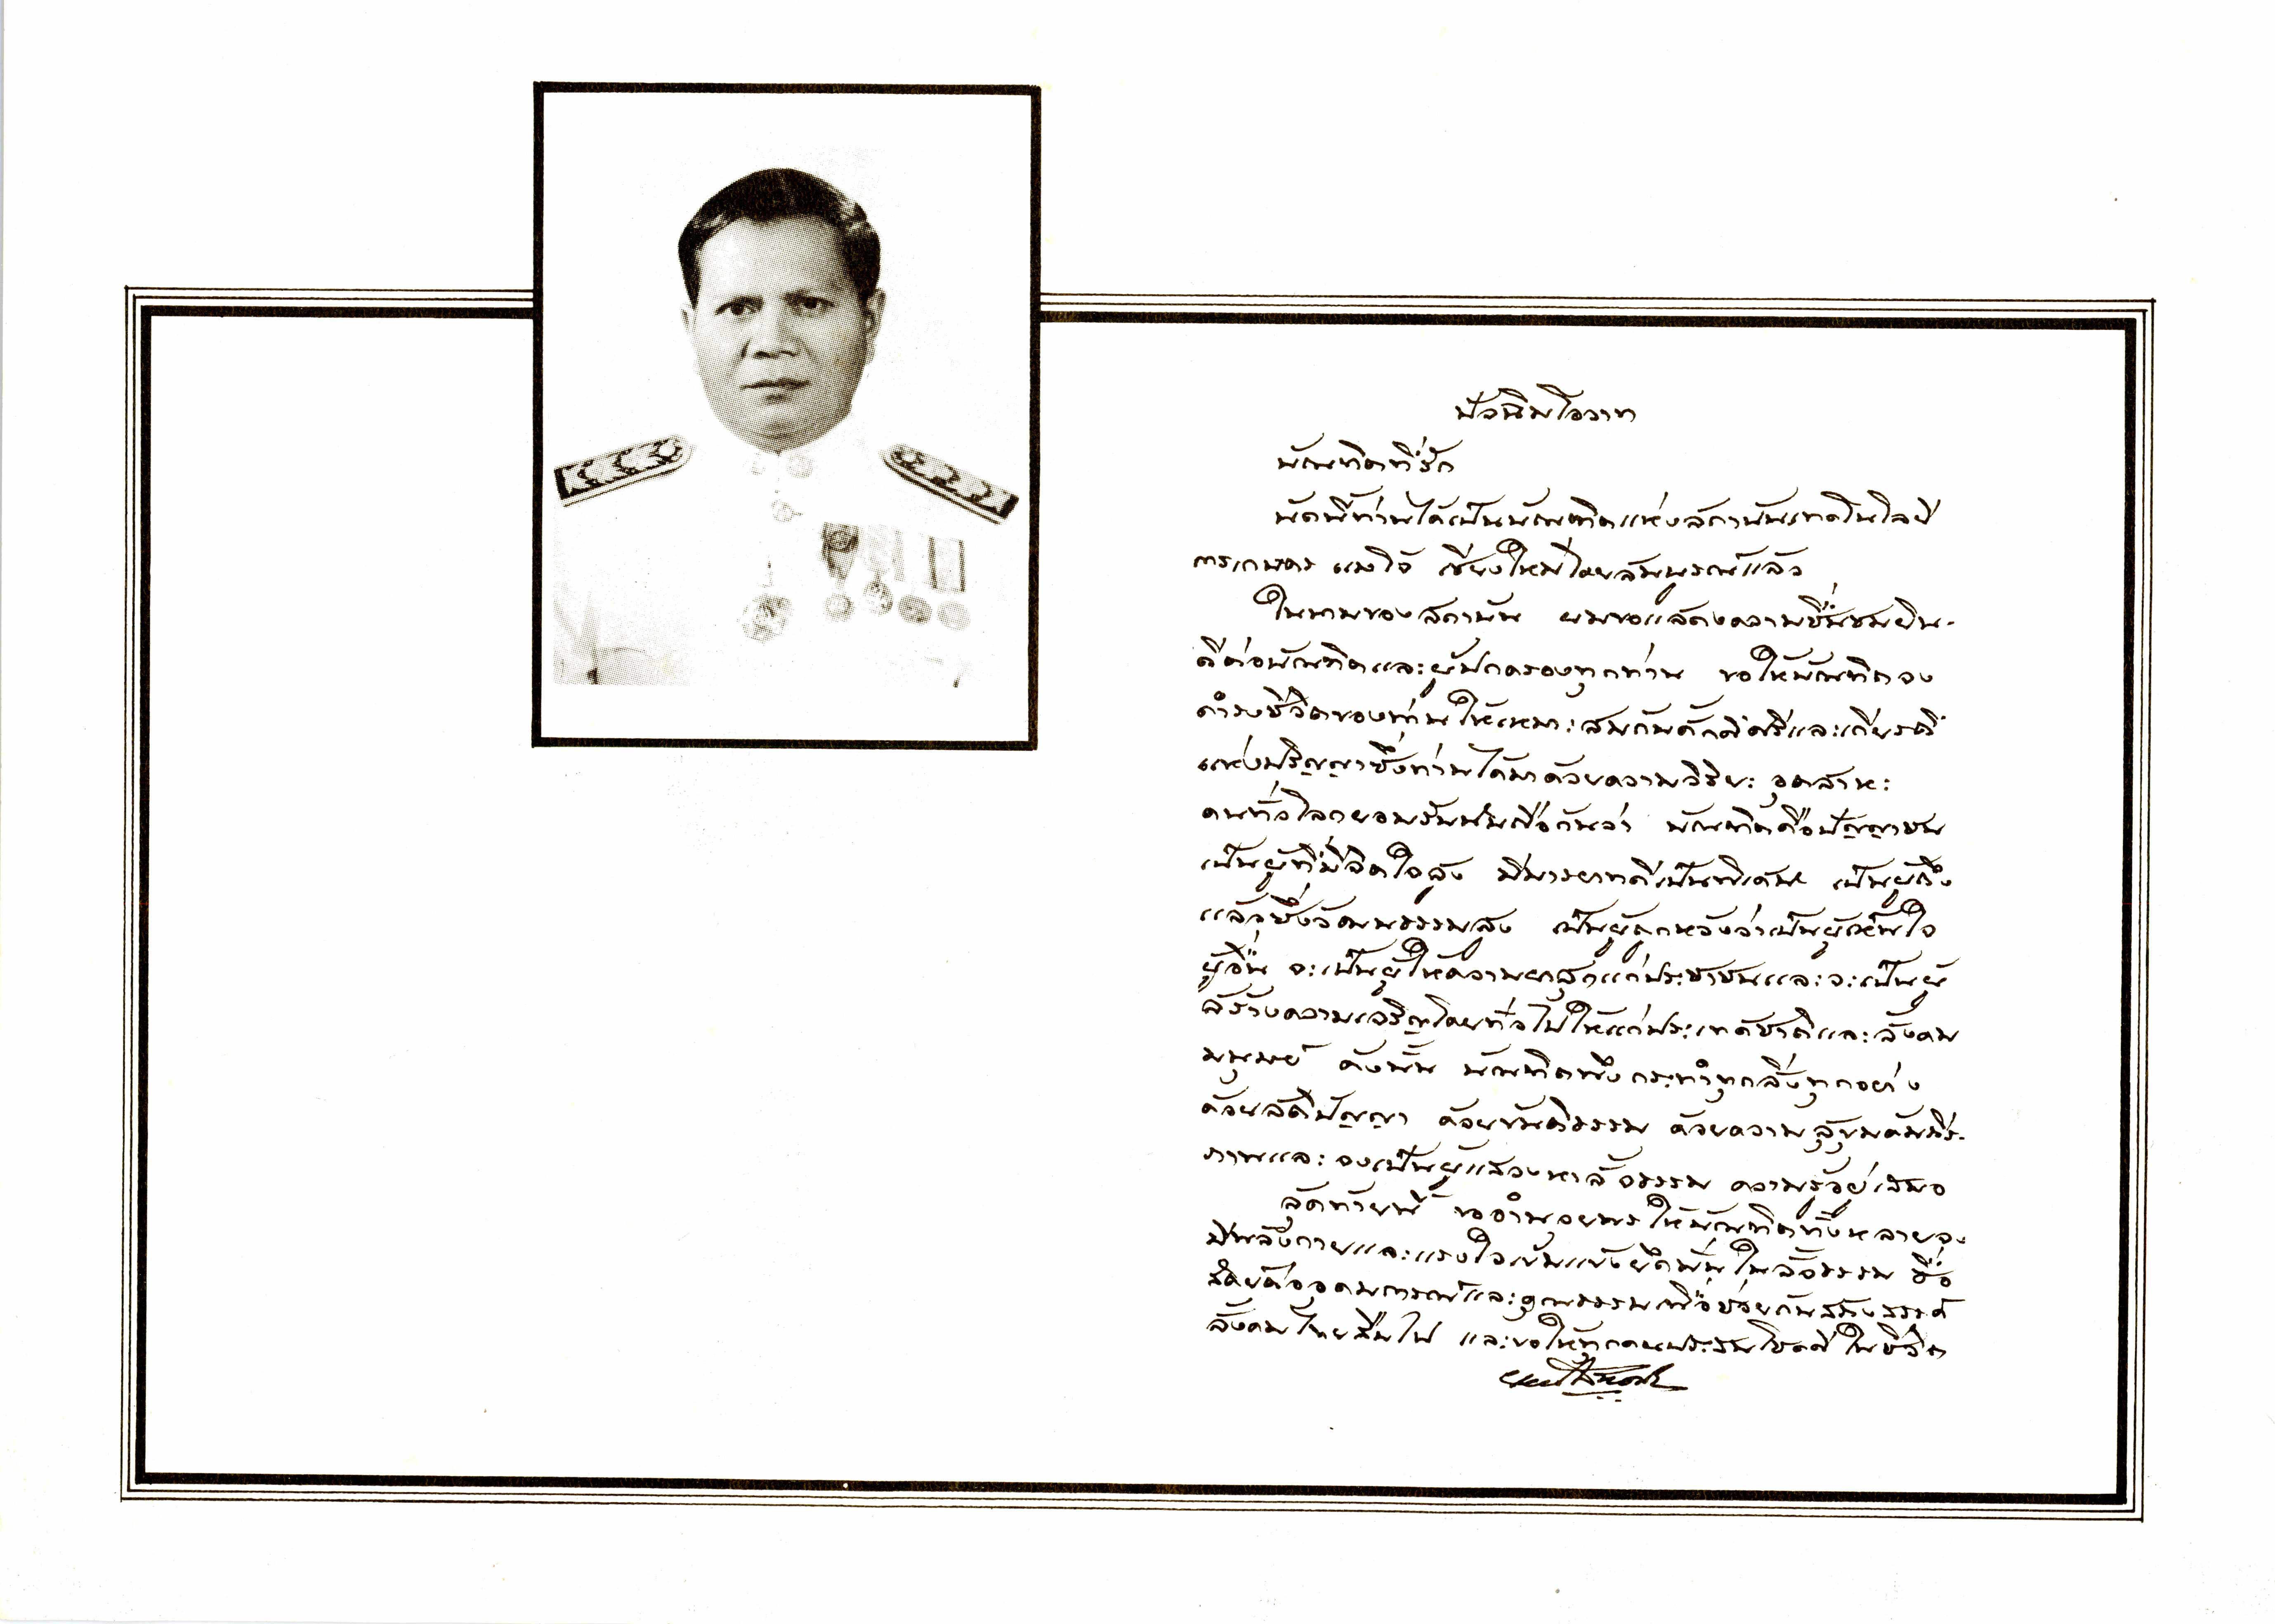 ปัจฉิมโอวาท
บัณฑิตที่รัก
บัดนี้ท่านได้เป็นบัณฑิตแห่งสถาบันเทคโนโลยี
การเกษตร แม่โจ้ เชียงใหม่โดยสมบูรณ์แล้ว
ในนามของสถาบัน ผมขอแสดงความชื่นชมยิน-
ดีต่อบัณฑิตและผู้ปกครองทุกท่าน ขอให้บัณฑิตจง
ดำรงชีวิตของท่านให้เหมาะสมกับศักดิ์ศรีและเกียรติ
แห่งปริญญาซึ่งท่านได้มาด้วยความวิริยะ อุตสาหะ
คนทั่วโลกยอมรับนับถือกันว่า บัณฑิตคือปัญญาชน
เป็นผู้ที่มีจิตใจสูง มีมารยาทดีเป็นพิเศษ เป็นผู้ถึง
แล้วซึ่งวัฒนธรรมสูง เป็นผู้ถูกหวังว่าเป็นผู้เห็นใจ
ผู้อื่น จะเป็นผู้ให้ความผาสุกแก่ประชาชนและจะเป็นผู้
สร้างความเจริญโดยทั่วไปให้แก่ประเทศชาติและสังคม
มนุษย์ ดังนั้น บัณฑิตพึงกระทำทุกสิ่งทุกอย่าง
ด้วยสติปัญญา ด้วยขันติธรรม ด้วยความสุขุมคัมภีร-
ภาพและจงเป็นผู้แสวงหาสัจธรรม ความรู้อยู่เสมอ
สุดท้ายนี้ ขออำนวยพรให้บัณฑิตทั้งหลายจง
มีพลังกายและแรงใจเข้มแข็งยึดมั่นในสัจธรรม ซื่อ
สัตย์ต่ออุดมการณ์และคุณธรรมเพื่อช่วยกันสร้างสรรค์
สังคมไทยสืบไป และขอให้ทุกคนประสบโชคดีในชีวิต